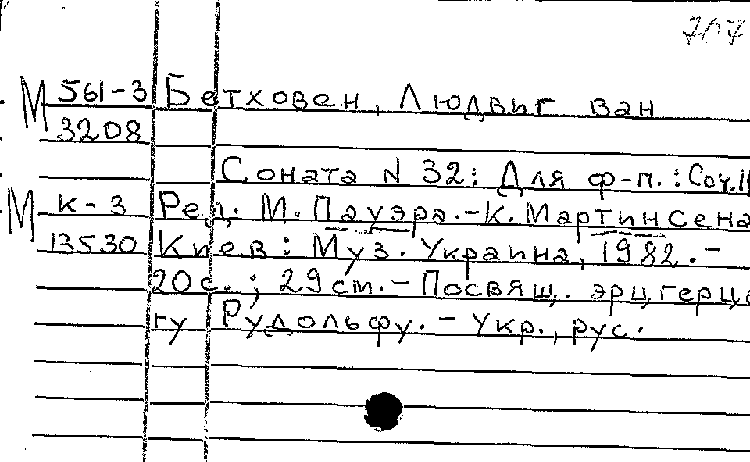 707
М 561-3 Бетховен, Людвиг ван
3208
Соната N 32: Для ф-п.: Соч.11
М К-3 Ред. М. Пауэра.-К. Мартинсена
13530 Киев: Муз. Украина, 1982.-
20с.; 29см.- Посвящ. эрцгерцо
гу Рудольфу. - Укр., рус.